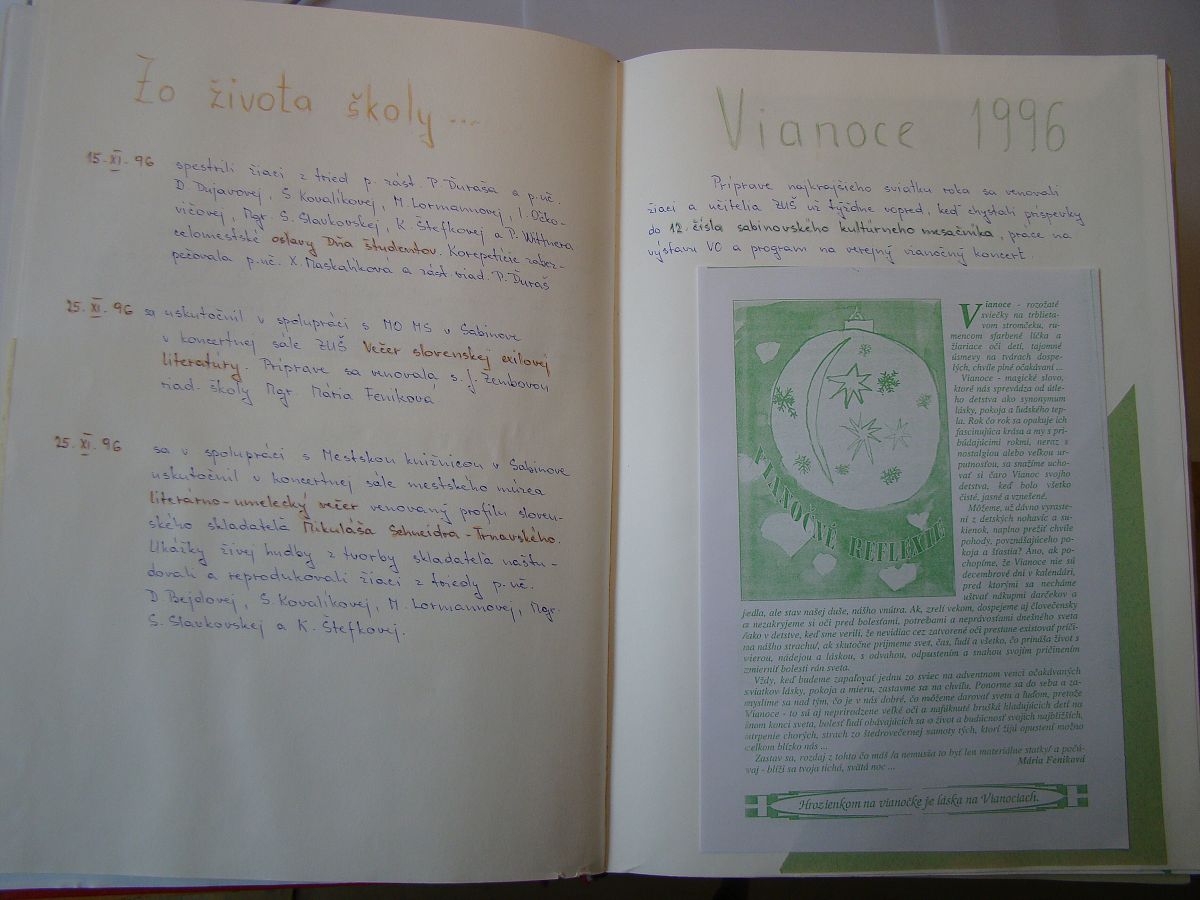 Zo života školy...
15. XI. 96 spestrili žiaci z tried p. zást. P. Ďuraša a p. uč.
D. Dujavovej, S. Kovalíkovej, M. Lormannovej, I. Očko-
vičovej, Mgr. S. Slavkovskej, K. Štefkovej a P. Wittnera
celomestské oslavy Dňa študentov. Korepetície zabez-
pečovala p. uč. X. Maskalíková a zást. riad. P. Ďuraš
25. XI. 96 sa uskutočnil v spolupráci s MO MS v Sabinove
v koncertnej sále ZUŠ Večer slovenskej exilovej
literatúry. Príprave sa venovala s. J. Zembovou
riad. školy Mgr Mária Feníková
25. XI. 96 sa v spolupráci s Mestskou knižnicou v Sabinove
uskutočnil v koncertnej sále mestského múzea
literárno-umelecký večer venovaný profilu sloven-
ského skladateľa Mikuláša Schneidra-Trnavského.
Ukážky živej hudby z tvorby skladateľa naštu-
dovali a reprodukovali žiaci z triedy p. uč.
D. Bejdovej, S. Kovalíkovej, M. Lormannovej, Mgr.
S. Slavkovskej a K. Štefkovej.
Vianoce 1996
Príprave najkrajšieho sviatku roka sa venovali
žiaci a učitelia ZUŠ už týždne vopred, keď chystali príspevky
do 12. čísla sabinovského kultúrneho mesačníka, práce na
výstavu VO a program na verejný vianočný koncert.
VIANOČNÉ REFLEXIE
Vianoce - rozožaté
sviečky na trblieta-
vom stromčeku, ru-
mencom sfarbené líčka a
žiariace oči detí, tajomné
úsmevy na tvárach dospe-
lých, chvíle plné očakávaní ...
Vianoce - magické slovo,
ktoré nás sprevádza od útle-
ho detstva ako synonymum
lásky, pokoja a ľudského tep-
la. Rok čo rok sa opakuje ich
fascinujúca krása a my s pri-
búdajúcimi rokmi, neraz s
nostalgiou alebo veľkou ur-
putnosťou, sa snažíme ucho-
vať si čaro Vianoc svojho
detstva, keď bolo všetko
čisté, jasné a vznešené.
Môžeme, už dávno vyraste-
ní z detských nohavíc a su-
kienok, naplno prežiť chvíle
pohody, povznášajúceho po-
koja a šťastia? Áno, ak po-
chopíme, že Vianoce nie sú
decembrové dni v kalendári,
pred ktorými sa necháme
uštvať nákupmi darčekov a
jedla, ale stav našej duše, nášho vnútra. Ak, zrelí vekom, dospejeme aj človečensky
a nezakryjeme si oči pred bolesťami, potrebami a neprávosťami dnešného sveta
/ako v detstve, keď sme verili, že nevidiac cez zatvorené oči prestane existovať príči-
na nášho strachu/, ak skutočne prijmeme svet, čas, ľudí a všetko, čo prináša život s
vierou, nádejou a láskou, s odvahou, odpustením a snahou svojím pričinením
zmierniť bolesti rán sveta.
Vždy, keď budeme zapaľovať jednu zo sviec na adventnom venci očakávaných
sviatkov lásky, pokoja a mieru, zastavme sa na chvíľu. Ponorme sa do seba a za-
myslime sa nad tým, čo je v nás dobré, čo môžeme darovať svetu a ľuďom, pretože
Vianoce - to sú aj neprirodzene veľké oči a nafúknuté brušká hladujúcich detí na
inom konci sveta, bolesť ľudí obávajúcich sa o život a budúcnosť svojich najbližších,
utrpenie chorých, strach zo štedrovečernej samoty tých, ktorí žijú opustení možno
celkom blízko nás ...
Zastav sa, rozdaj z tohto čo máš /a nemusia to byť len materiálne statky/ a počú-
vaj - blíži sa tvoja tichá, svätá noc ...
Mária Feníková
Hrozienkom na vianočke je láska na Vianociach.